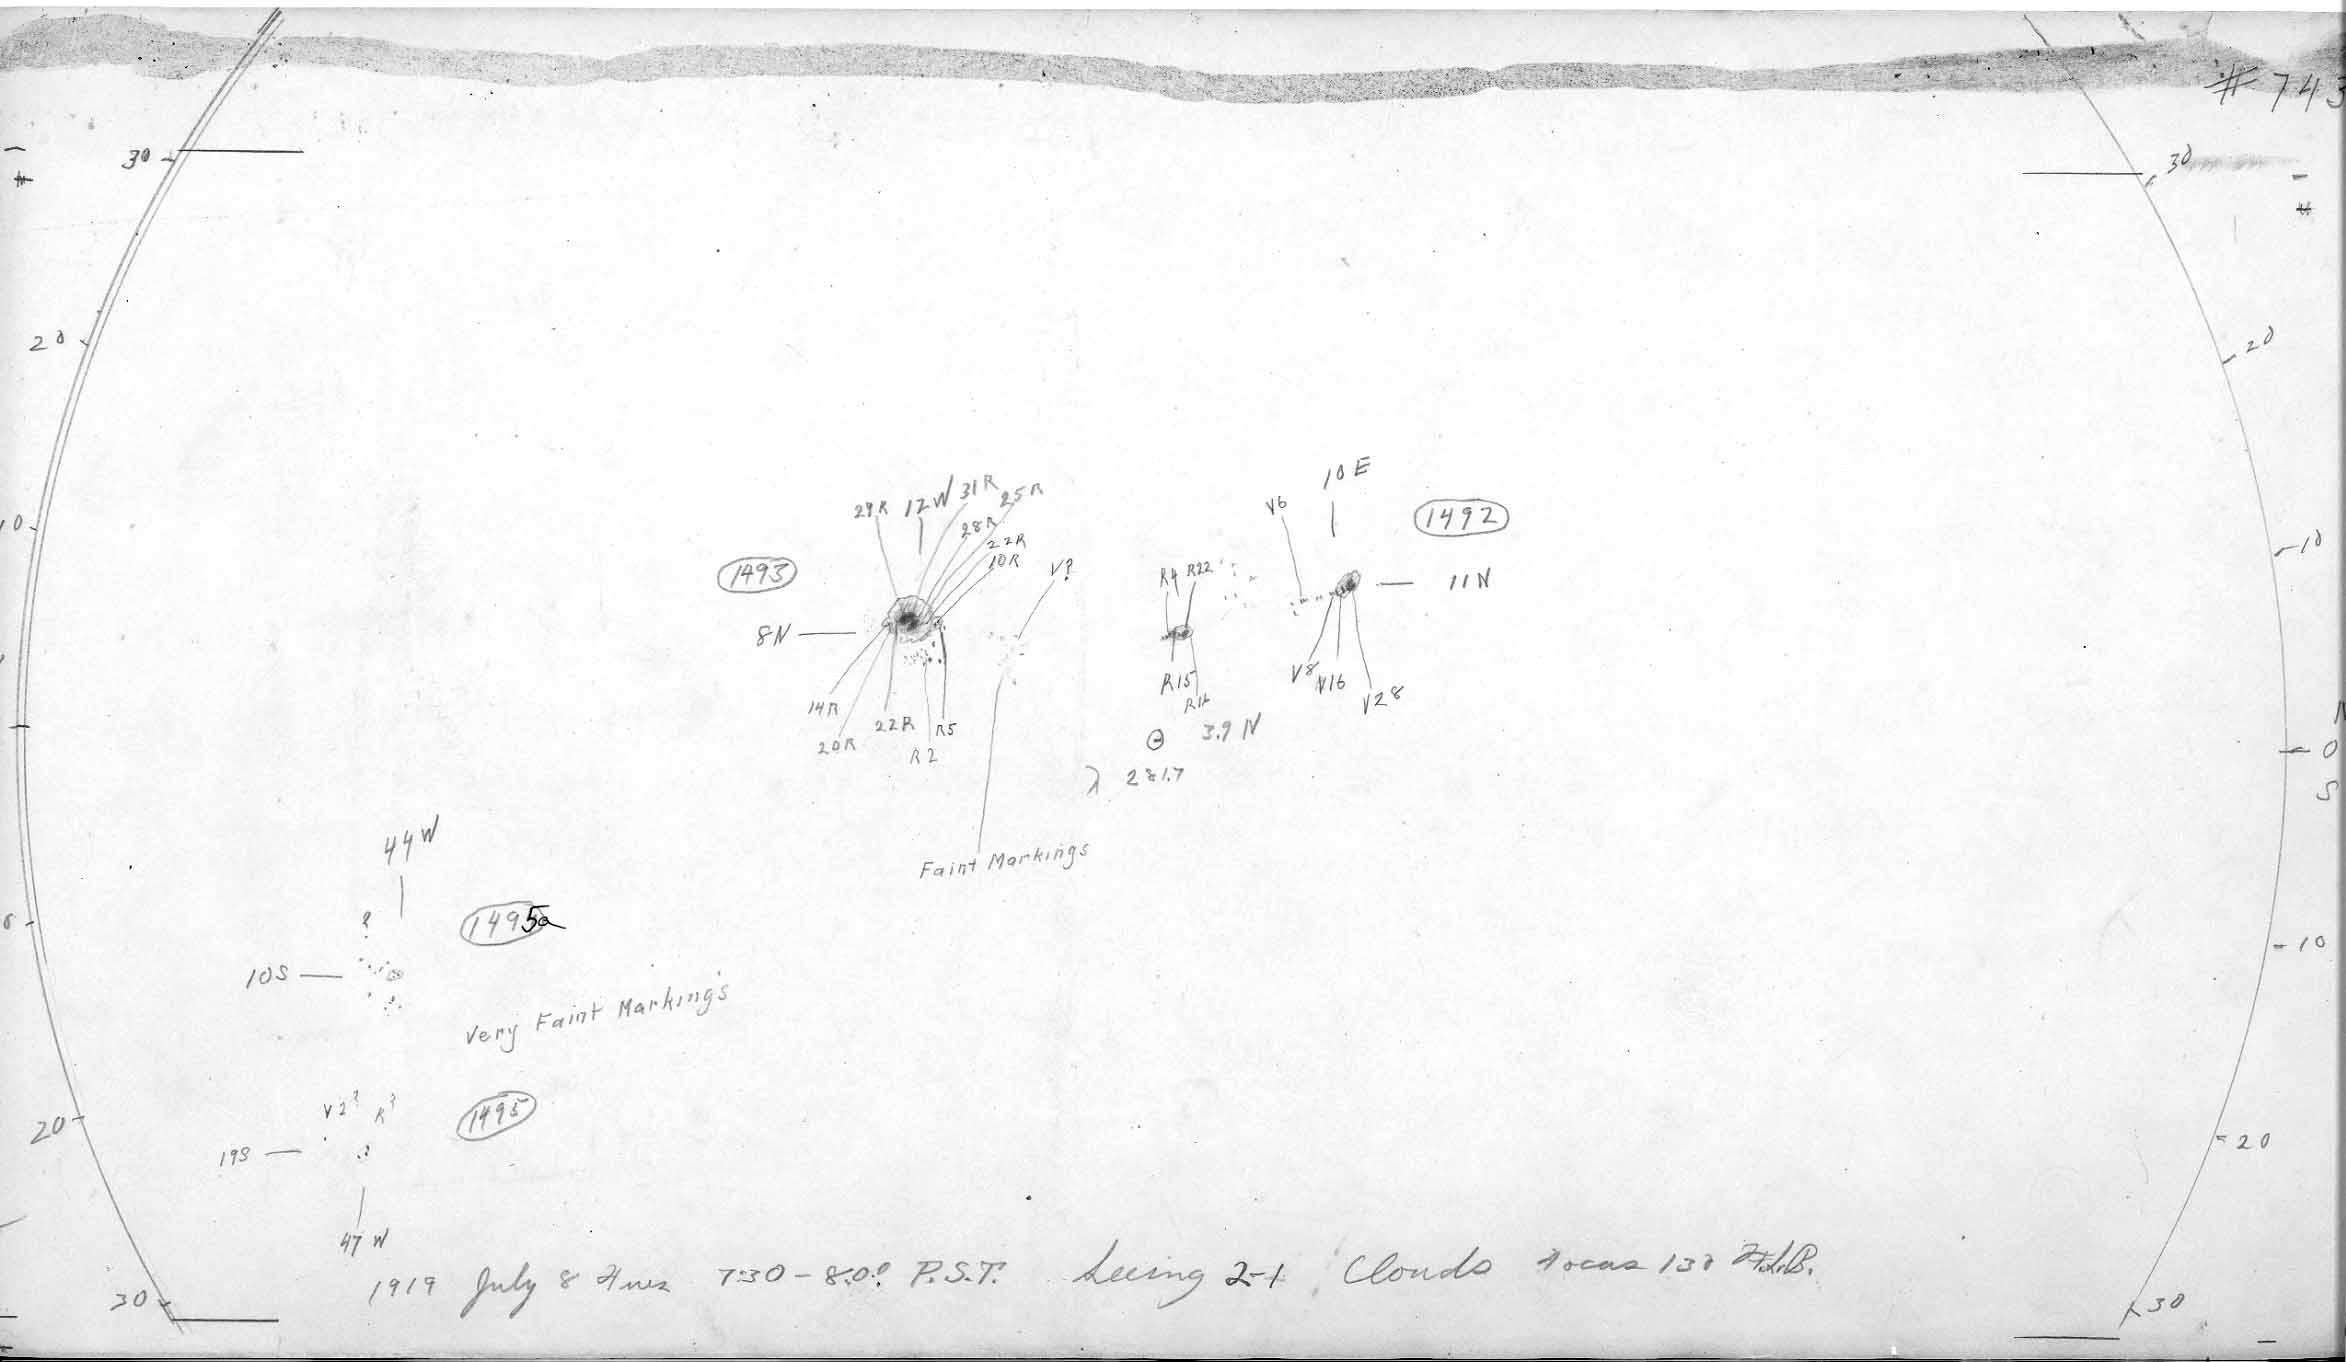 # 743
30
30
20
20
10
10
10 E
V6
1492
29R 12W 31R 25R
28R
22R
10R
V?
1493
R4 R22
11N
8N
V8 V16 V28
R15
R16
14R
20R
22R R5
R2
3.9 N
⊙
λ 281.7
N
0
S
Faint Markings
44 W
?
1495a
10
10S
Very Faint Markings
V2? R?
1495
20
20
19S
47 W
1919 July 8 7:30 - 8:00 P.S.T. Seeing 2-1 Clouds Focus 130 F.L.B.
30
30